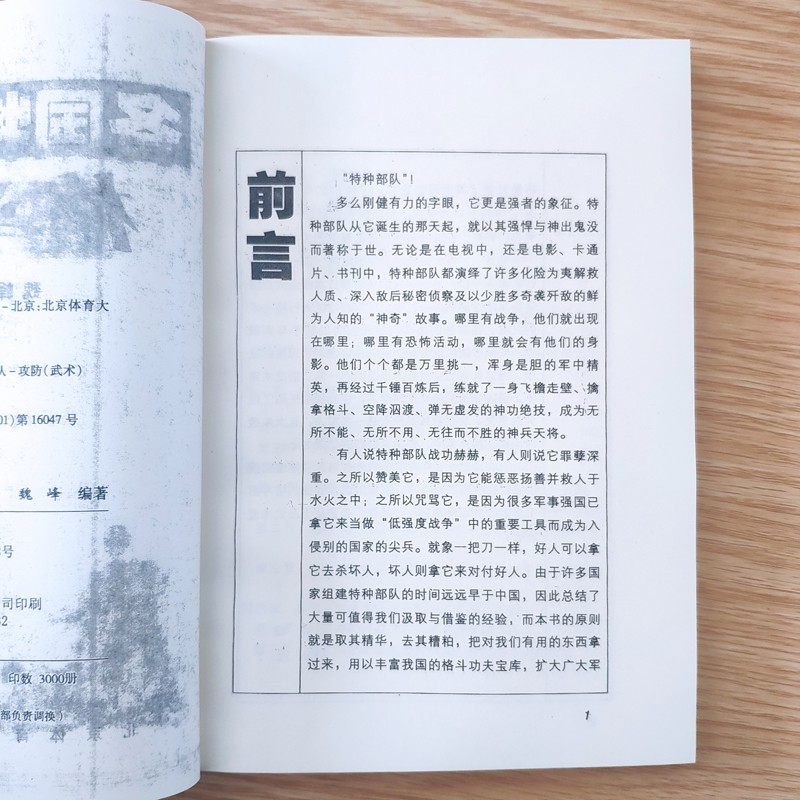 -北京:北京体育大
-攻防(武术)
01)第16047号
魏 峰 编著
号
司印刷
印数 3000册
部负责调换)
前言
“特种部队”!
多么刚健有力的字眼，它更是强者的象征。特
种部队从它诞生的那天起，就以其强悍与神出鬼没
而著称于世。无论是在电视中，还是电影、卡通
片、书刊中，特种部队都演绎了许多化险为夷解救
人质、深入敌后秘密侦察及以少胜多奇袭歼敌的鲜
为人知的“神奇”故事。哪里有战争，他们就出现
在哪里；哪里有恐怖活动，哪里就会有他们的身
影。他们个个都是万里挑一，浑身是胆的军中精
英，再经过千锤百炼后，练就了一身飞檐走壁、擒
拿格斗、空降泅渡、弹无虚发的神功绝技，成为无
所不能、无所不用、无往而不胜的神兵天将。
有人说特种部队战功赫赫，有人则说它罪孽深
重。之所以赞美它，是因为它能惩恶扬善并救人于
水火之中；之所以咒骂它，是因为很多军事强国已
拿它来当做“低强度战争”中的重要工具而成为入
侵别的国家的尖兵。就象一把刀一样，好人可以拿
它去杀坏人，坏人则拿它来对付好人。由于许多国
家组建特种部队的时间远远早于中国，因此总结了
大量可值得我们汲取与借鉴的经验，而本书的原则
就是取其精华，去其糟粕，把对我们有用的东西拿
过来，用以丰富我国的格斗功夫宝库，扩大广大军
1